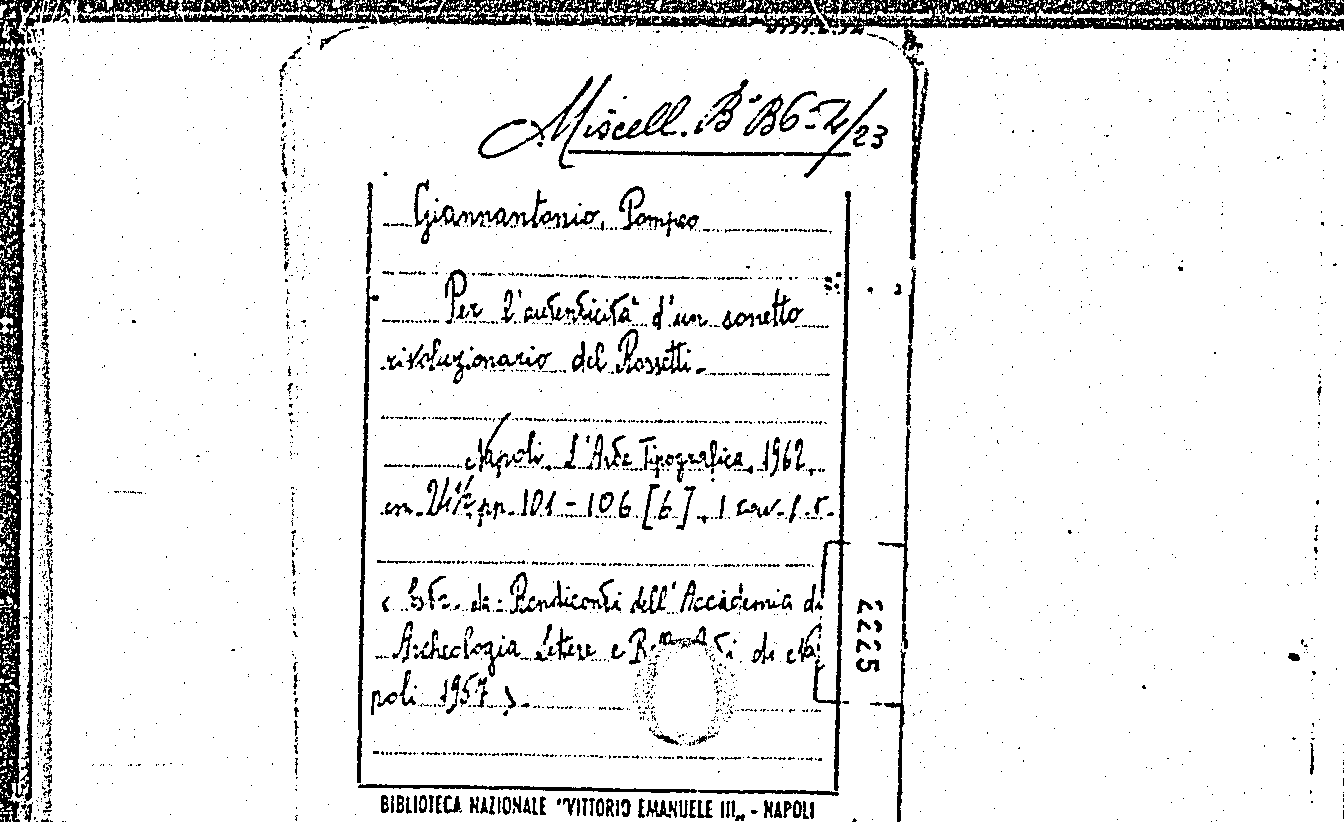 Miscell. B* B6-2/23
Giannantonio, Pompeo
Per l'autenticità d'un sonetto
rivoluzionario del Rossetti.
Napoli, L'Arte Tipografica, 1962,
cm. 24½ pp. 101-106 [6], 1 tav. f. t.
Estr. da: Rendiconti dell'Accademia di
Archeologia Lettere e Belle Arti di Na
poli 1957).
2225
BIBLIOTECA NAZIONALE "VITTORIO EMANUELE III„ - NAPOLI